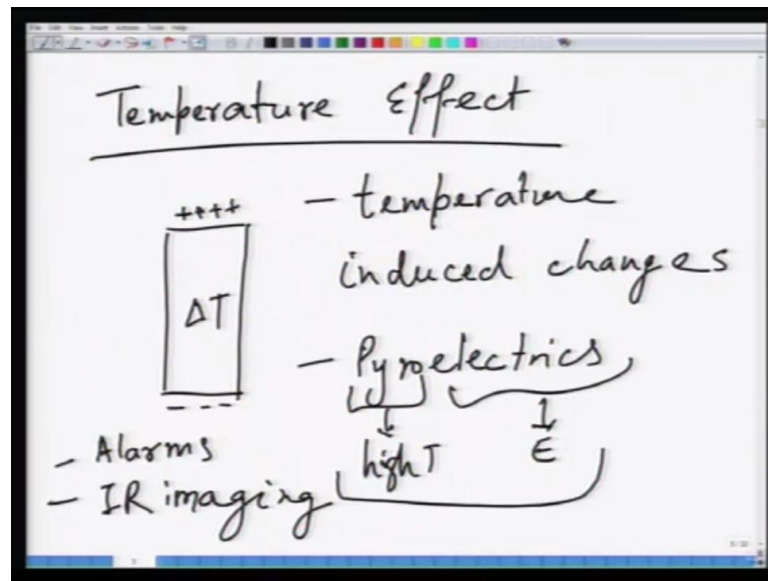 Temperature Effect
++++
ΔT
----
- temperature
induced changes
- Pyroelectrics
high T
E
- Alarms
- IR imaging